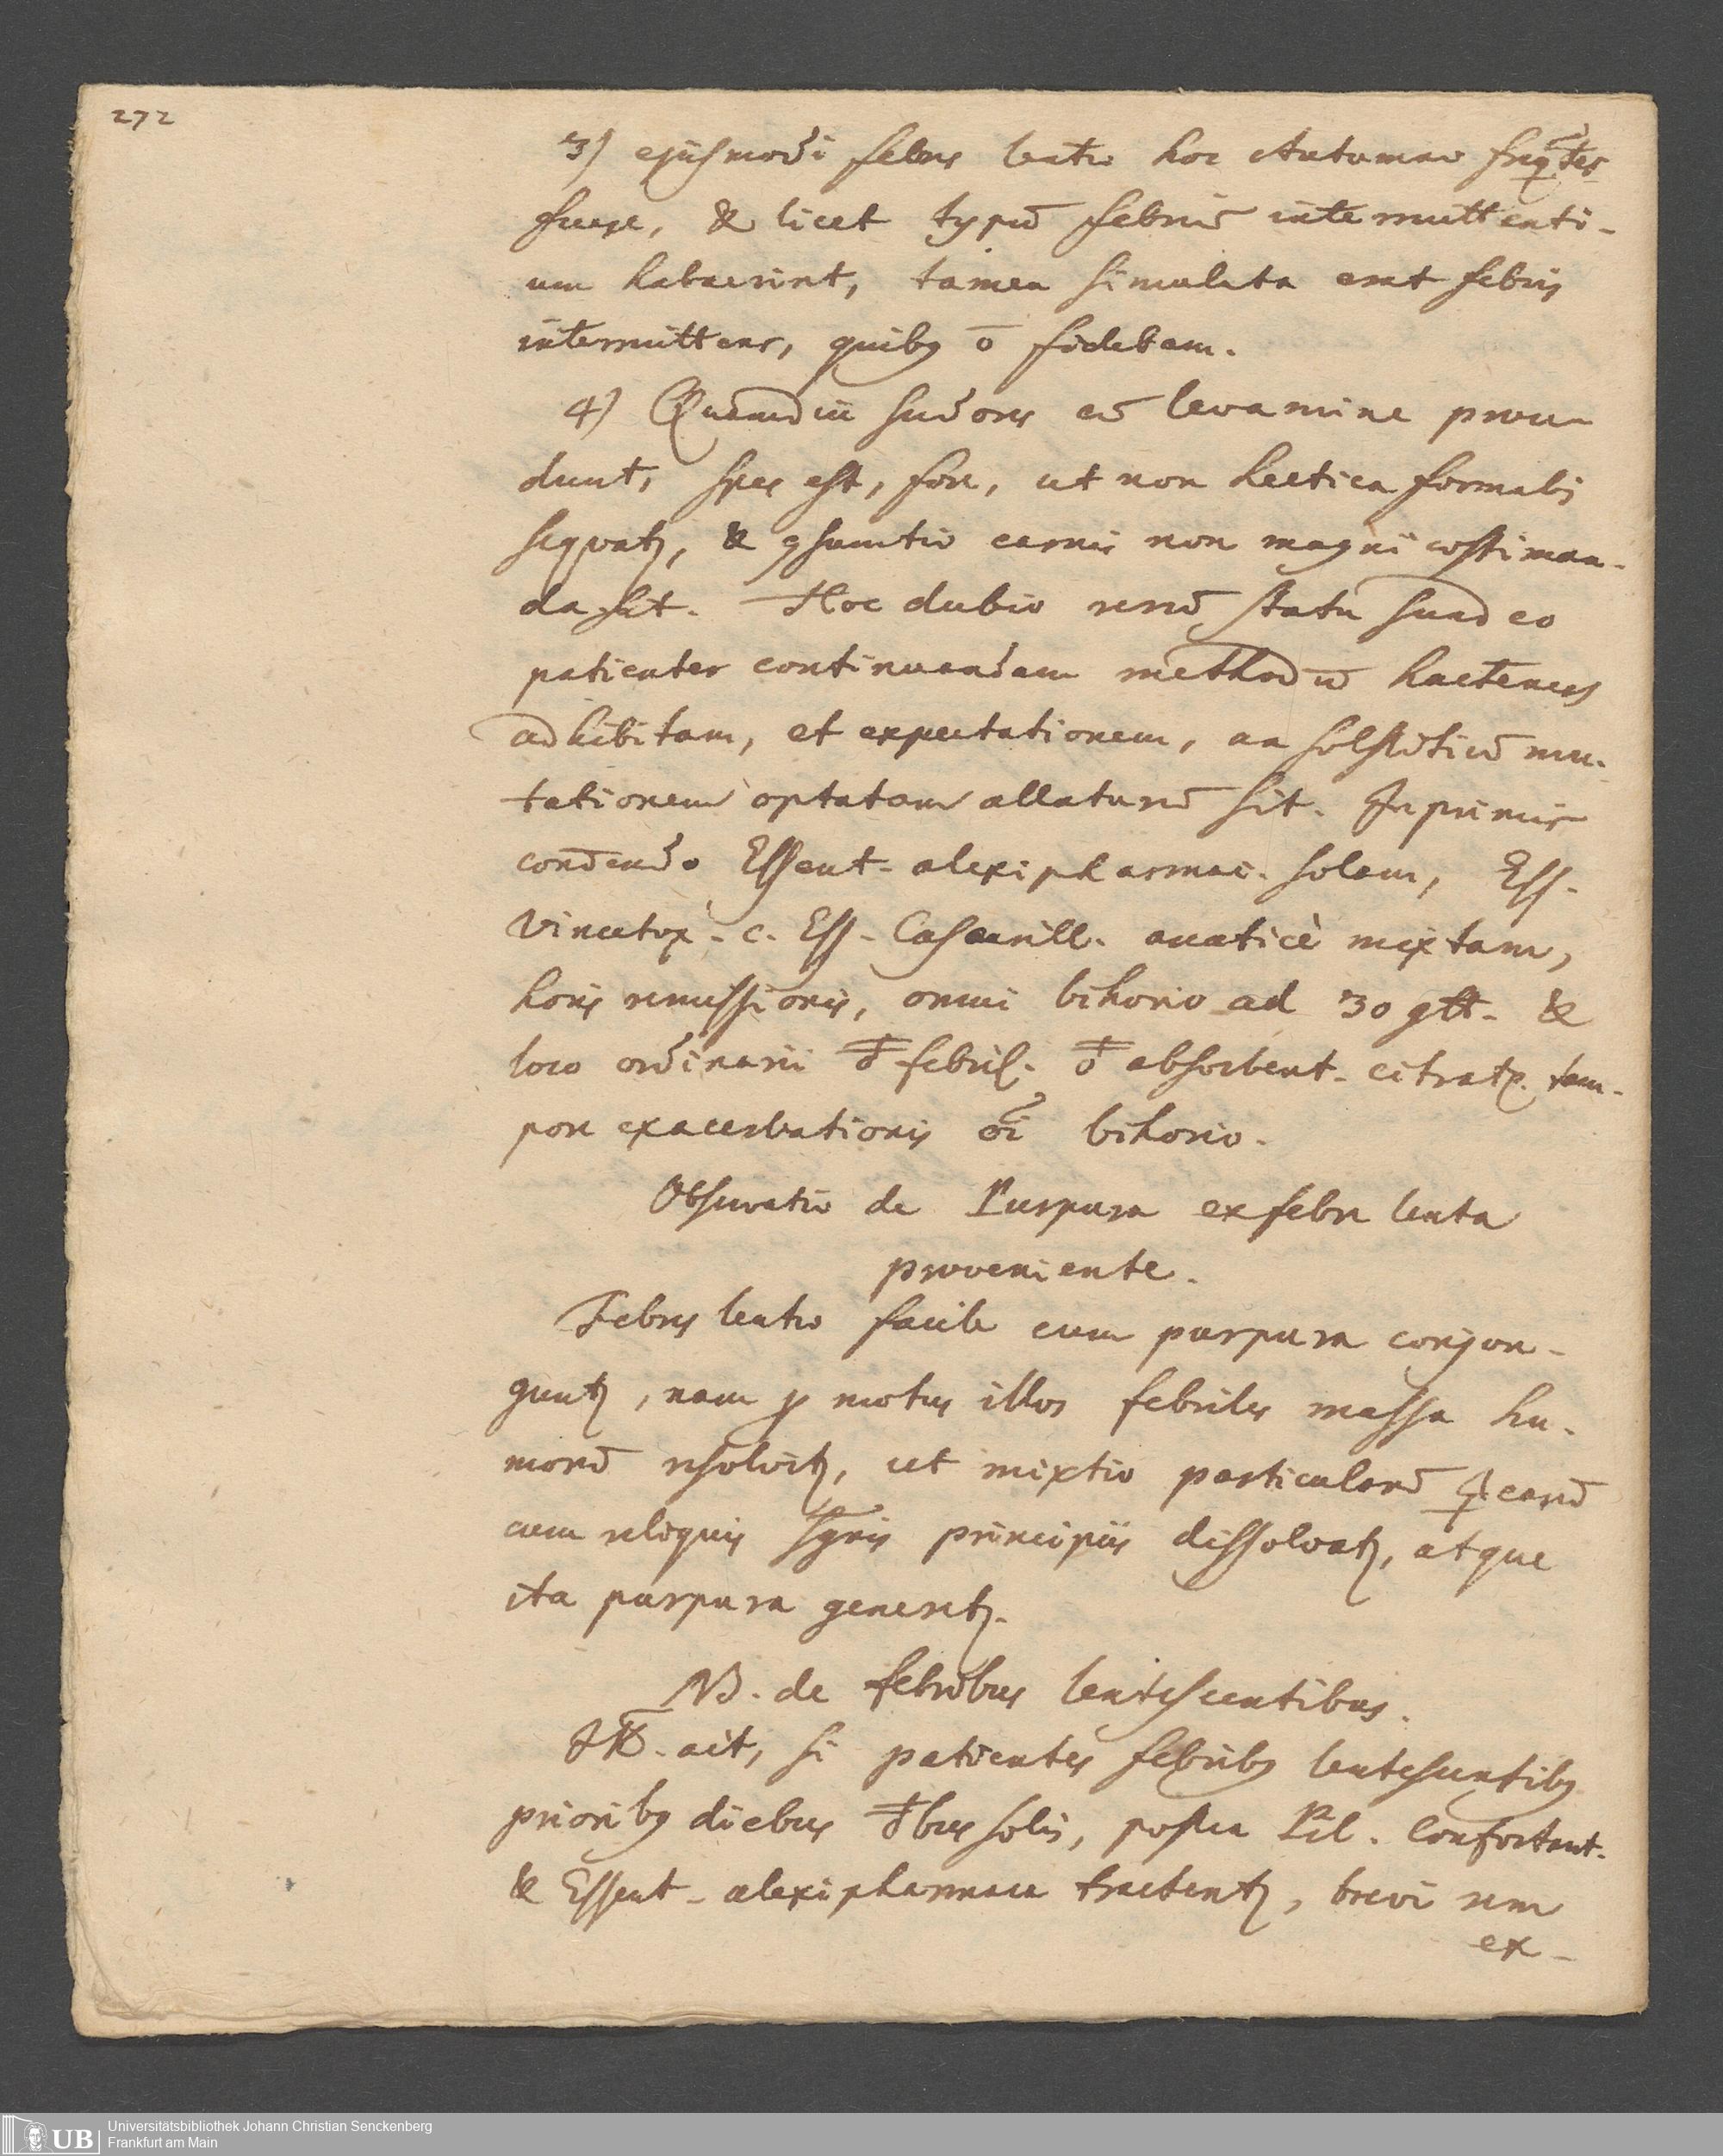 272
3) ejusmodi febres lentae hoc Autumno freq̄tes
fuere, & licet typū febriū intermittenti-
um habuerint, tamen simulata erat febris
intermittens, quibꝫ ō fidebam.
4) Quamdiu sudores cū levamine prou-
dunt, spes est, fore, ut non hectica formalis
sequatꝫ, & ꝯsumtio carnis non magni aestiman-
da sit. Hoc dubio rerū statu suadeo
patienter continuandam methodū hactenus
adhibitam, et expectationem, an solstitiū mu-
tationem optatam allaturū sit. Inprimis
com̄endo Essent. alexipharmac. solam, Ess.
Vincetox. c. Ess. Cascarill. anaticè mixtam,
horis remissionis, omni bihorio ad 30 gtt. &
loco ordinarii febril. absorbent. citrat. tem-
pore exacerbationis oī bihorio.
Observatio de Purpura ex febre lenta
proveniente.
Febres lentae facile cum purpura conjun-
guntꝫ, nam ꝑ motus illos febriles massa hu-
morū resolvitꝫ, ut mixtio particularū earū
cum reliquis sgnis principiis dissolvatꝫ, atque
ita purpura generetꝫ.
NB. de febribus lentescentibus.
ait, si patientes febribꝫ lentescentibꝫ
prioribꝫ diebus bus solis, postea Pil. Confortant.
& Essent. alexipharmaca tractentꝫ, brevi rem
ex-
Universitätsbibliothek Johann Christian Senckenberg
Frankfurt am Main
UB